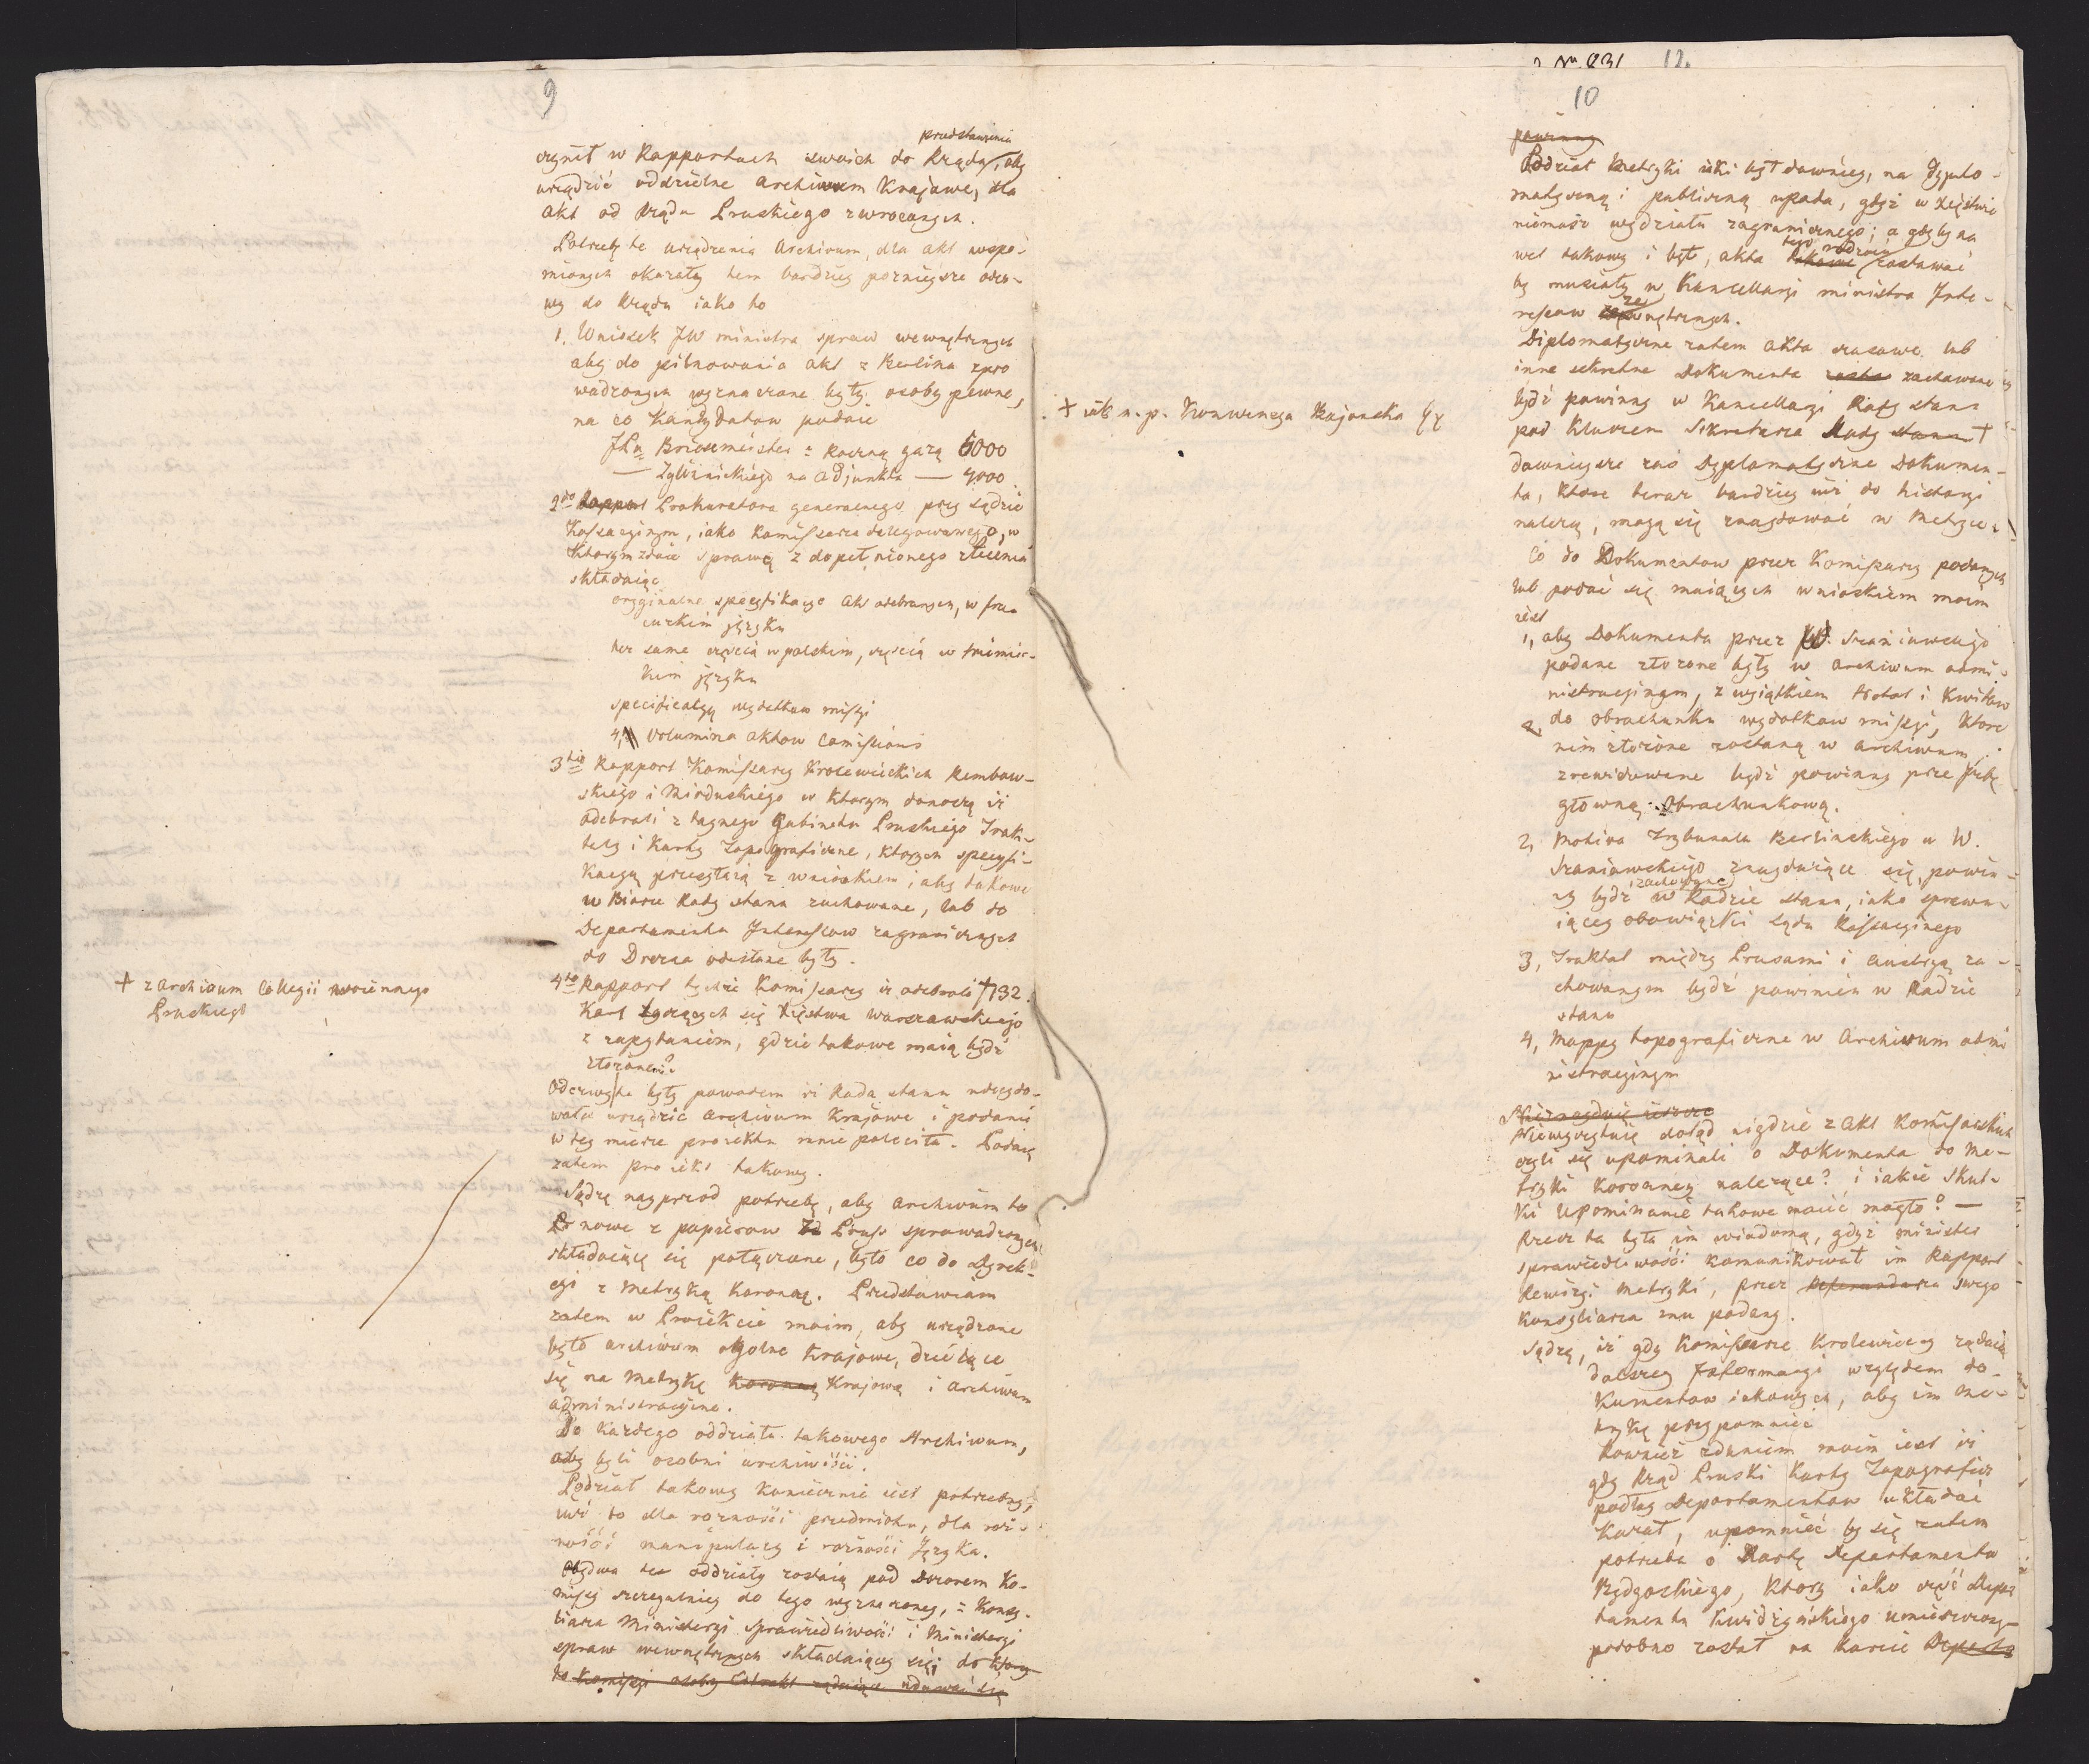 9
przedstawienia
czynił w Rapportach swoich do Rządu, aby
urządzić oddzielne archiwum Krajowe, dla
akt od Rządu Pruskiego zwroconych.
Potrzebę te urządzenia Archivum, dla akt wspo-
mionych okazały tem bardziey poznieysze odez-
wy do Rządu iako to
1. Wniosek JW ministra spraw wewnętrznych
aby do pilnowania akt z Berlina zpro
wadzonych wyznaczone były osoby pewne,
na co Kandydatow podaie
JPn Bricsemeister z Roczną gażą 6000
— Zglinickiego na adjunkta — 4000.
2do Rapport Prokuratora generalnego przy sądzie
Kassacyinym, iako Kamissarza delegowanego, w
Ktorym zdaie sprawę z dopełnionego zlecenia
składaiąc
orygynalne specyfikacye akt odebranych, w fran-
cuzkim języku
też same częścią w polskim, częścią w niemiec-
kim języku
specificatyą wydatkow missyi
4, Volumina aktow Comissionis
3tio Rapport Komissarzy Krolewieckich Rembow-
skiego i Mioduskiego w Ktorym donoszą iż
odebrali z taynego Gabinetu Pruskiego Trak-
taty i Karty Topograficzne, Ktorych specyfi-
Kacyą przesyłaią z wnioskiem, aby takowe
w Biorze Rady stanu zachowane, lub do
Departamentu Interessow zagranicznych
do Drezna odesłane były.
4to Rapport tychże Komissarzy iż odebrali + 132
Kart tyczących się Xięstwa Warszawskiego
z zapytaniem, gdzie takowe maią bydź
złożone?
+ z archivum Collegii woiennego
Pruskiego
Odezwy te były powodem iż Rada stanu zdecydo-
wała urządzić archivum Krajowe i podanie
w tey mierze proiektu mnie poleciła. Podaię
zatem proiekt takowy.
Sądzę nayprzod potrzebę, aby archivum to
nowe z papierow z Pruss sprowadzonych
składaiące się połączone, było co do Dyrek-
cyi z Metryką Koronną. Przedstawiam
zatem w Proiekcie moim, aby urządzone
było archiwum ogolne Krajowe, dzielące
się na Metrykę Koronną Krajową i archiwum
administracyine.
Do każdego oddziału takowego Archiwum,
aby byli osobni archiwiści.
Podział takowy koniecznie iest potrzebny,
iuż to dla rożności przedmiotu, dla roż-
ności manipulacyi i rożności Języka.
Obydwa te oddziały zostaią pod Dozorem Ko-
missyi szczegulniey do tego wyznaczoney, z Konsy-
liarza Ministeryi sprawiedliwości i Ministeryi
spraw wewnętrznych składaiącey się; do Ktorey
to Komissyi osoby Extrakt żądaiące udawać się
12.
10
powinny
Podział Metryki iaki był dawniey, na dyplo-
matyczną i publiczną upada, gdyż w Xięstwie
niemasz wydziału zagranicznego; a gdyby na
wet takowy i był, akta takowe tego rodzaiu zostawać
by musiały w Kancellaryi ministra Inte-
ressow zewnętrznych.
Diplomatyczne zatem akta czasowe lub
inne sekretne Dokumenta zachowane
bydź powinny w Kancellaryi Rady stanu
pod Kluczem Sekretarza Rady stanu +
+ iak n.p. Konwencya Bajonska
dawnieysze zaś Dyplomatyczne Dokumen-
ta, Ktore teraz bardziey iuż do historyi
należą, mogą się znaydować w Metryce.
Co do Dokumentow przez Komissarzy podanych
lub podać się maiących wnioskiem moim
iest
1, aby Dokumenta przez W. Szaniawskiego
podane złożone były w archiwum admi-
nistracyinym, z wyiątkiem Notat i Kwitow
do obrachunku wydatkow missyi, Ktore
nim złożone zostaną w archiwum
zrewidowane bydź powinny prze Jzbę
głowną Obrachunkową.
2, Motiva Trybunału Berlinskiego u W.
Szaniawskiego znayduiące się, powin-
ny bydź zachowane w Radzie stanu, iako sprawu-
iącey obowiązki sądu Kassacyinego
3, Traktat między Prusami i Austryą za-
chowanym bydź powinien w Radzie
stanu
4, Mappy topograficzne w Archiwum admi
nistracyinym
Nieznayduię ieszcze
Niewyczytuię dotąd nigdzie z akt Komissarskich
czyli się upominali o Dokumenta do Me-
tryki Koronney należące? i iakie skut-
ki Upominanie takowe mieć mogło? —
Rzecz ta była im wiadomą, gdyż minister
sprawiedliwości Komunikował im Rapport
Rewizyi Metryki, przez Referendarza swego
Konsyliarza mu podany.
Sądzę, iż gdy Komissarze Krolewieccy żądaią
dalszey Informacyi względem do-
Kumentow iakowych, aby im Me-
trykę przypomnieć
Rownież zdaniem moim iest iż
gdy Rząd Pruski Karty Topograficz
podług Departamentow układać
kazał, upomnieć by się zatem
potrzeba o Kartę Departamentu
Bydgoskiego, Ktory iako część Depar
tamentu Kwidzyńskiego umieszczony
podobno został na Karcie